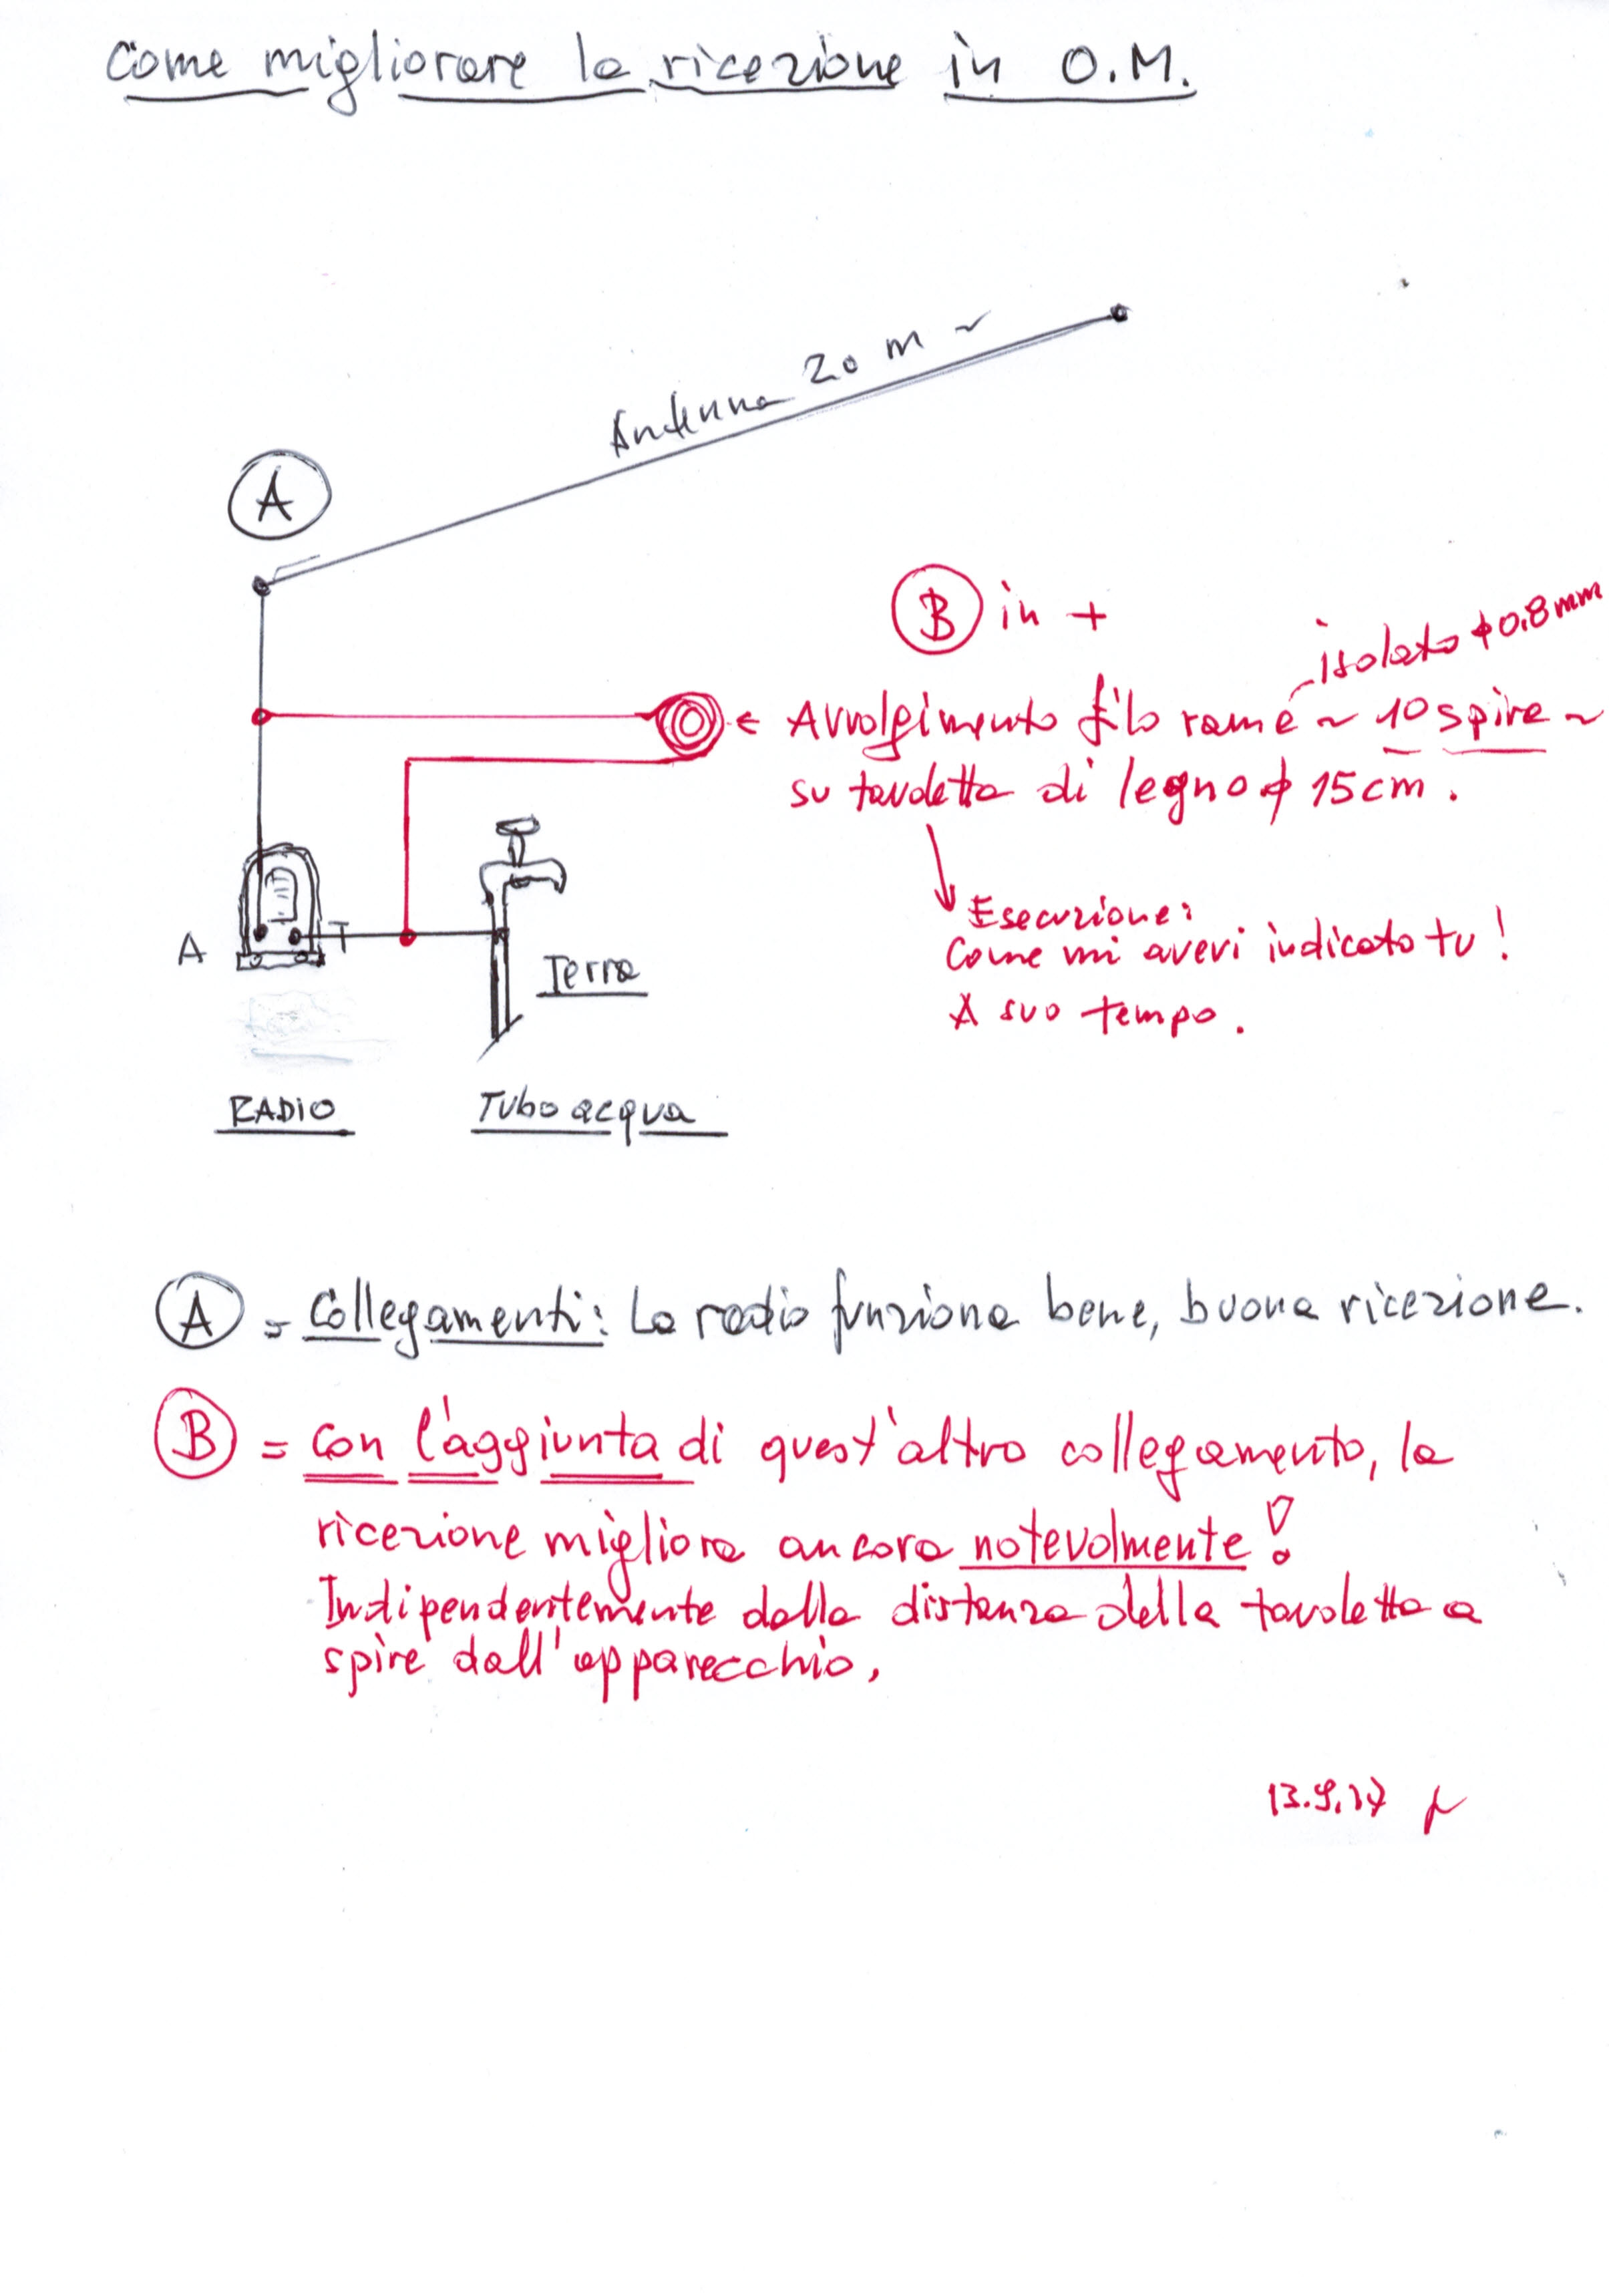 Come migliorare la ricezione in O.M.
Antenna 20 m ~
A
B in +
isolato φ 0,8 mm
← Avvolgimento filo rame ~ 10 spire ~
su tavoletta di legno φ 15 cm.
Esecuzione:
Come mi averi indicato tu!
A suo tempo.
A
T
Terra
RADIO
Tubo acqua
A = Collegamenti: La radio funziona bene, buona ricezione.
B = con l'aggiunta di quest'altro collegamento, la
ricezione migliora ancora notevolmente!
Indipendentemente dalla distanza della tavoletta a
spire dall'apparecchio.